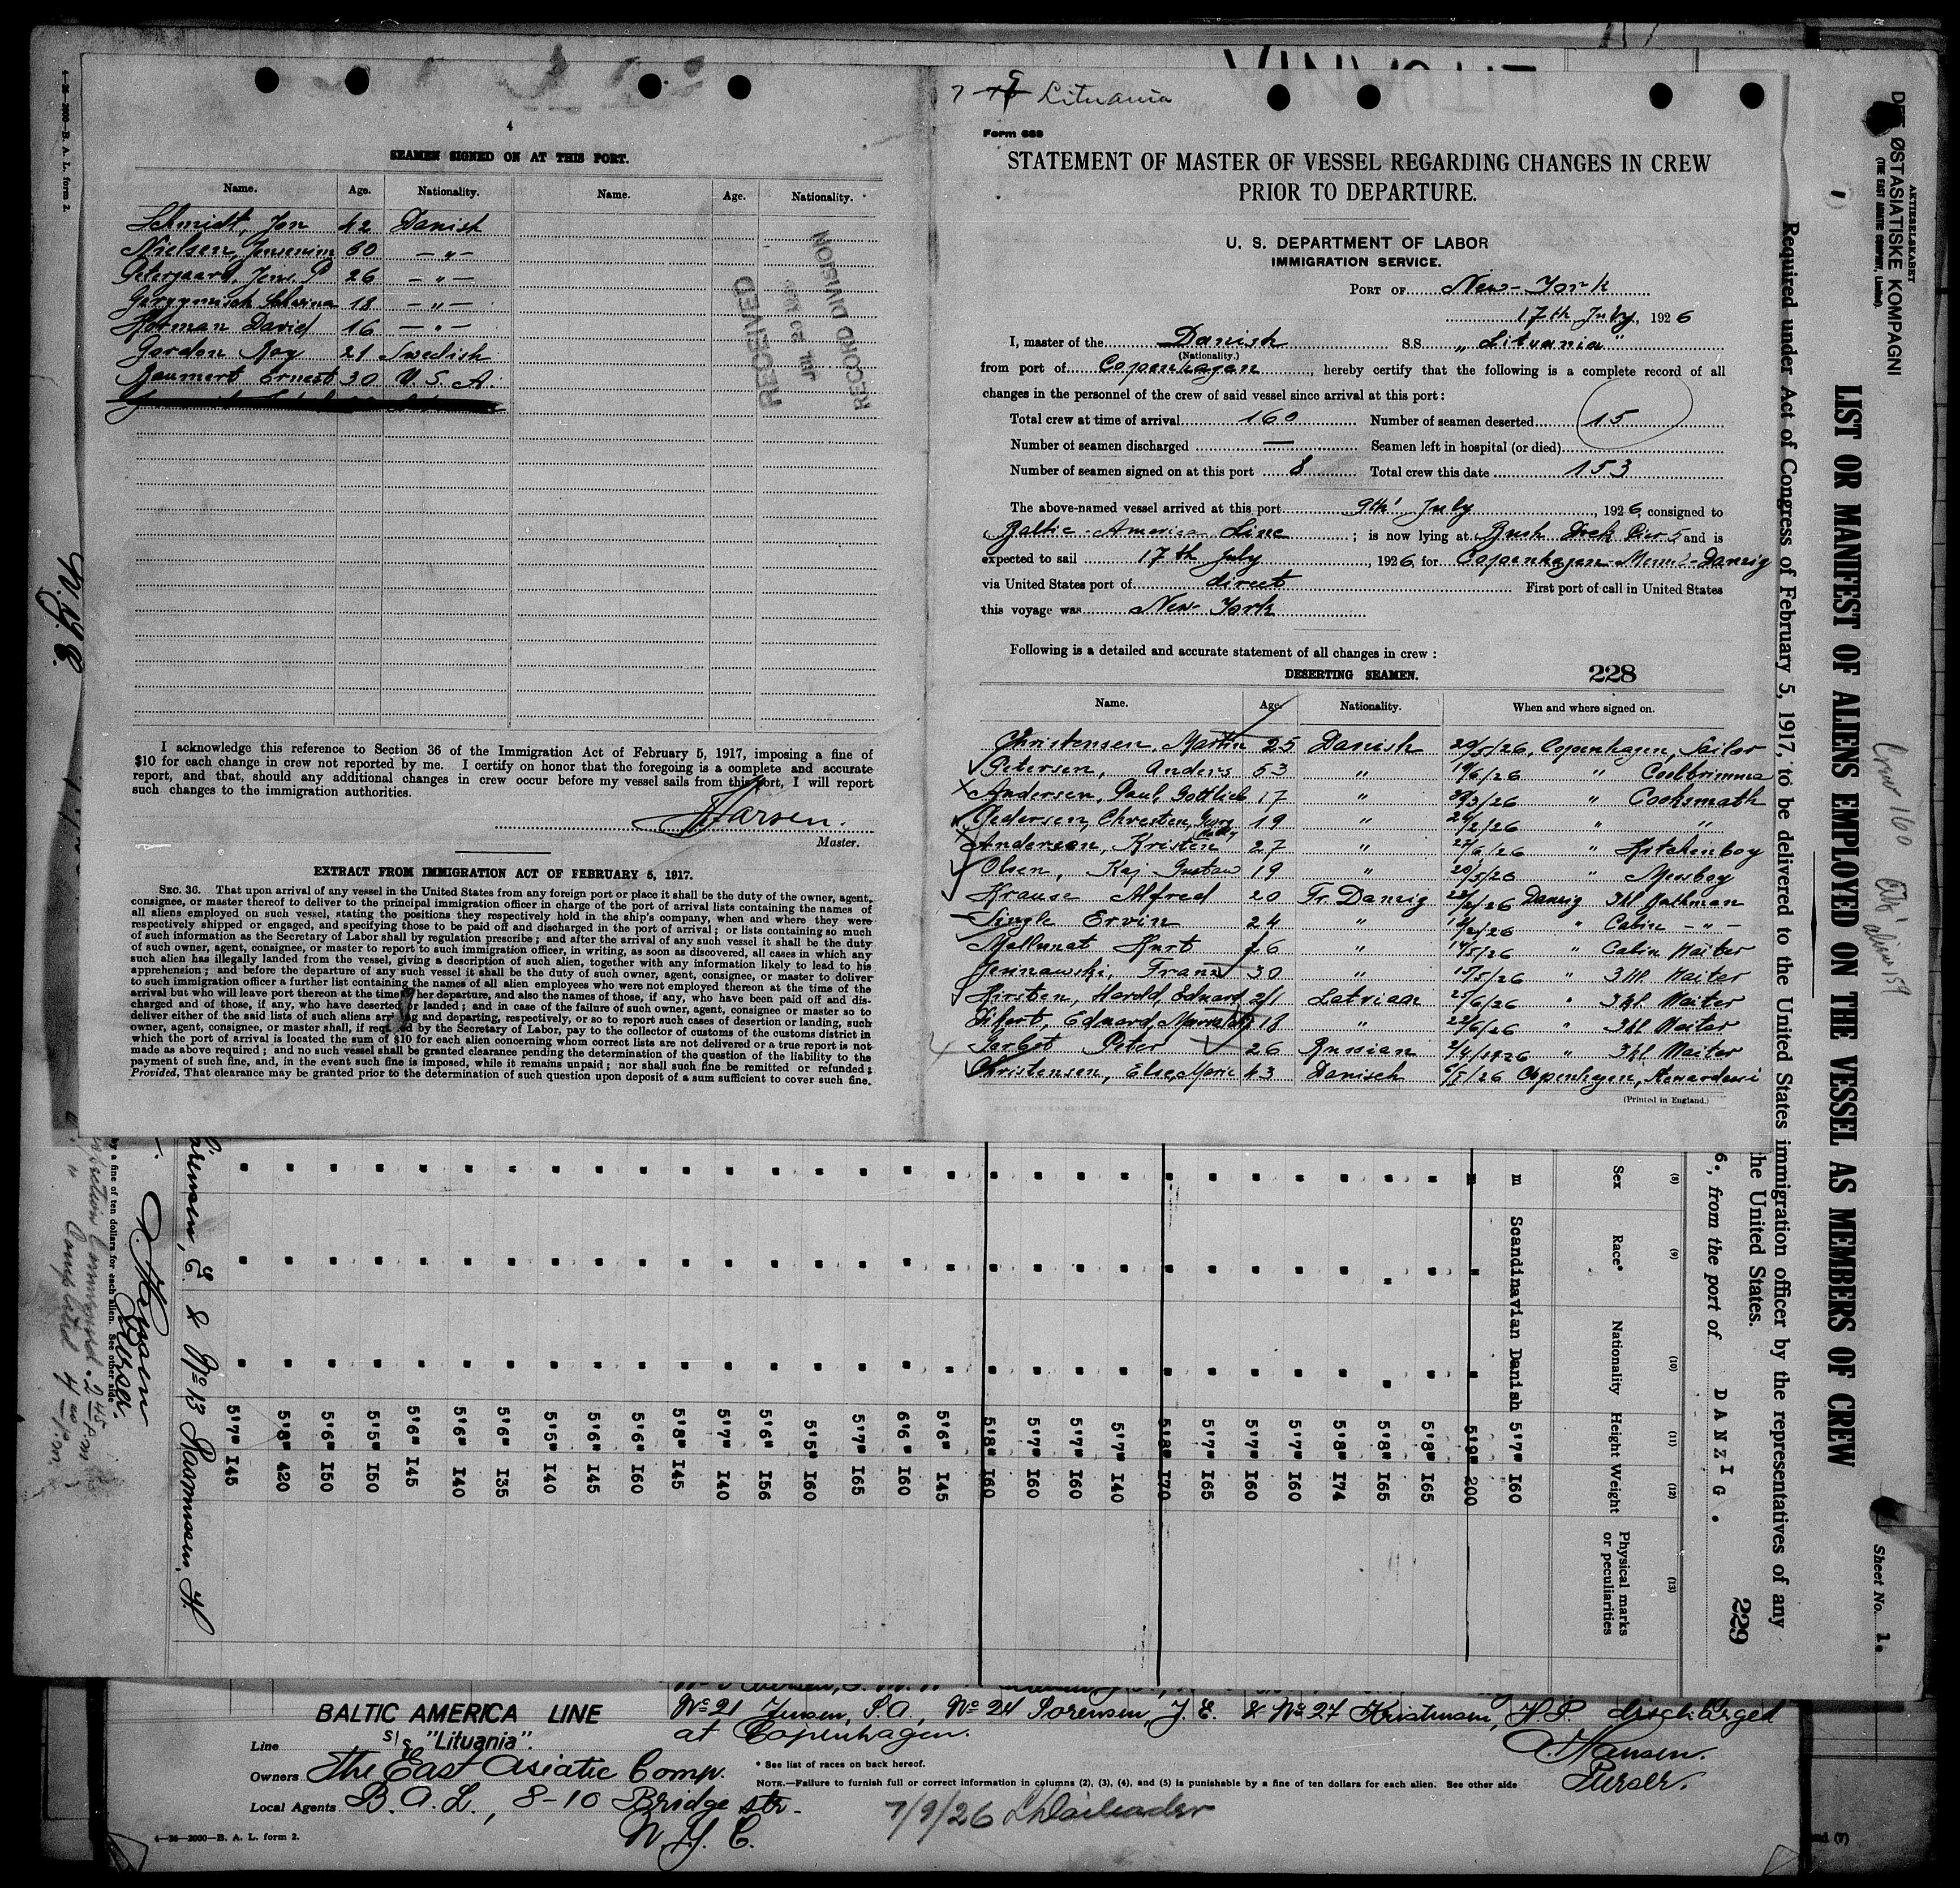 4
SEAMEN SIGNED ON AT THIS PORT.
Name. Age. Nationality. Name. Age. Nationality.
Schmidt, Jon 42 Danish
Nielsen, 60 — " —
Jens P 26 — " —
18 — " —
Horman David 16 — " —
Gordon Roy 21 Swedish
Ernest 30 U. S. A.
RECEIVED
RECORD DIVISION
I acknowledge this reference to Section 36 of the Immigration Act of February 5, 1917, imposing a fine of
$10 for each change in crew not reported by me. I certify on honor that the foregoing is a complete and accurate
report, and that, should any additional changes in crew occur before my vessel sails from this port, I will report
such changes to the immigration authorities.
Master.
EXTRACT FROM IMMIGRATION ACT OF FEBRUARY 5, 1917.
SEC. 36. That upon arrival of any vessel in the United States from any foreign port or place it shall be the duty of the owner, agent,
consignee, or master thereof to deliver to the principal immigration officer in charge of the port of arrival lists containing the names of
all aliens employed on such vessel, stating the positions they respectively hold in the ship's company, when and where they were
respectively shipped or engaged, and specifying those to be paid off and discharged in the port of arrival; or lists containing so much
of such information as the Secretary of Labor shall by regulation prescribe; and after the arrival of any such vessel it shall be the duty
of such owner, agent, consignee, or master to report to such immigration officer, in writing, as soon as discovered, all cases in which any
such alien has illegally landed from the vessel, giving a description of such alien, together with any information likely to lead to his
apprehension; and before the departure of any such vessel it shall be the duty of such owner, agent, consignee, or master to deliver
to such immigration officer a further list containing the names of all alien employees who were not employed thereon at the time of the
arrival but who will leave port thereon at the time of her departure, and also the names of those, if any, who have been paid off and dis-
charged and of those, if any, who have deserted or landed; and in case of the failure of such owner, agent, consignee or master so to
deliver either of the said lists of such aliens arriving and departing, respectively, or so to report such cases of desertion or landing, such
owner, agent, consignee, or master shall, if required by the Secretary of Labor, pay to the collector of customs of the customs district in
which the port of arrival is located the sum of $10 for each alien concerning whom correct lists are not delivered or a true report is not
made as above required; and no such vessel shall be granted clearance pending the determination of the question of the liability to the
payment of such fine, and, in the event such fine is imposed, while it remains unpaid; nor shall such fine be remitted or refunded:
Provided, That clearance may be granted prior to the determination of such question upon deposit of a sum sufficient to cover such fine.
Lituania
Form 689
STATEMENT OF MASTER OF VESSEL REGARDING CHANGES IN CREW
PRIOR TO DEPARTURE.
U. S. DEPARTMENT OF LABOR
IMMIGRATION SERVICE.
PORT OF New-York
17th July, 1926
I, master of the Danish S.S. „Lituania"
(Nationality.)
from port of Copenhagen, hereby certify that the following is a complete record of all
changes in the personnel of the crew of said vessel since arrival at this port:
Total crew at time of arrival 160 Number of seamen deserted 15
Number of seamen discharged — Seamen left in hospital (or died)
Number of seamen signed on at this port 8 Total crew this date 153
The above-named vessel arrived at this port 9th July, 1926, consigned to
Baltic-America Line; is now lying at Bush Dock Pier 5 and is
expected to sail 17th July, 1926, for Copenhagen-Memel-Danzig
via United States port of direct First port of call in United States
this voyage was New-York
Following is a detailed and accurate statement of all changes in crew:
DESERTING SEAMEN. 228
Name. Age. Nationality. When and where signed on.
Christensen, Martin 25 Danish 20/5/26, Copenhagen, Sailor
Petersen, Anders 53 " 19/6/26 "
Andersen, Paul, Gottlieb 17 " "  Cooksmath
Pedersen, Christen, 19 " " "
Andersen, Kristen 27 " " Kitchenboy
Olsen, Kaj Gustav 19 " 20/5/26 " Messboy
Krause Alfred 20 Fr. Danzig Danzig
Ervin 24 " " Cabin — " —
Kurt 26 " 14/5/26 " Cabin Waiter
Franz 30 " 15/5/26 " Waiter
Kirsten, Harold, Eduard 21 Latvian 25/6/26 " Waiter
Eduard, 18 " " Waiter
Peter 26 Russian " Waiter
Christensen, Else, Marie 43 Danisch Copenhagen,
(Printed in England.)
4—26—2000—B. A. L. form 2.
N.Y.C.
AKTIESELSKABET
DET ØSTASIATISKE KOMPAGNI
(THE EAST ASIATIC COMPANY, Limited)
LIST OR MANIFEST OF ALIENS EMPLOYED ON THE VESSEL AS MEMBERS OF CREW
Required under Act of Congress of February 5, 1917, to be delivered to the United States immigration officer by the representatives of any
the United States.
6., from the port of DANZIG.
229
Sheet No. 1.
Crew 160
(8) (9) (10) (11) (12) (13)
Sex Race* Nationality Height Weight Physical marks or peculiarities
m Scandinavian Danish 5'7" 160
5'9" 200
5'8" 165
5'8" 165
5'8" 174
5'7" 160
5'7" 160
5'7" 165
5'8" 170
5'7" 140
5'7" 160
5'7" 160
5'8" 160
5'6" 145
6'6" 160
5'7" 165
5'5" 160
5'6" 156
5'7" 140
5'8" 145
5'6" 160
5'6" 145
5'5" 140
5'6" 135
5'6" 140
5'6" 145
5'5" 150
5'6" 150
5'8" 420
5'7" 145
& No 13 Rasmussen, H.
Hansen
Purser.
by a fine of ten dollars for each alien. See other side.
Completed
BALTIC AMERICA LINE
Line S/S "Lituania".
Owners The East Asiatic Comp.
Local Agents B. A. L., 8-10 Bridge str.
N.Y.C.
4—26—2000—B. A. L. form 2.
No 21 Jensen, S.A., No 24 Sorensen, J.E. & No 27 Kristensen, H.P. discharged
at Copenhagen.
* See list of races on back hereof.
NOTE.—Failure to furnish full or correct information in columns (2), (3), (4), and (5) is punishable by a fine of ten dollars for each alien. See other side
Hansen.
Purser.
7/9/26